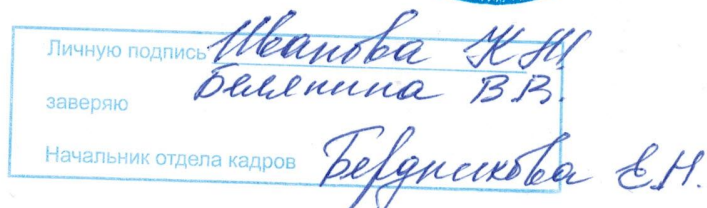 Личную подпись Иванова К Ю
Белянина В.В.
заверяю
Начальник отдела кадров Бердникова Е.Н.